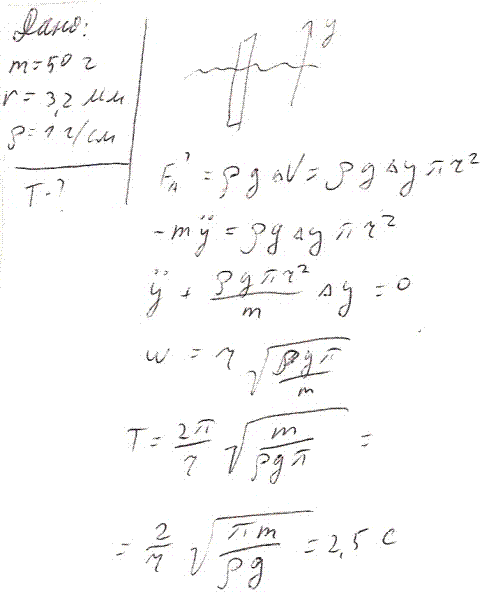 Дано:
m = 50 г
r = 3,2 мм
ρ = 1 г/см
T - ?
y
F_A' = ρgΔV = ρgΔyπr²
-mÿ = ρgΔyπr²
ÿ + ρgπr²/m Δy = 0
ω = r√(ρgπ/m)
T = 2π/r √(m/ρgπ) =
= 2/r √(πm/ρg) = 2,5 с